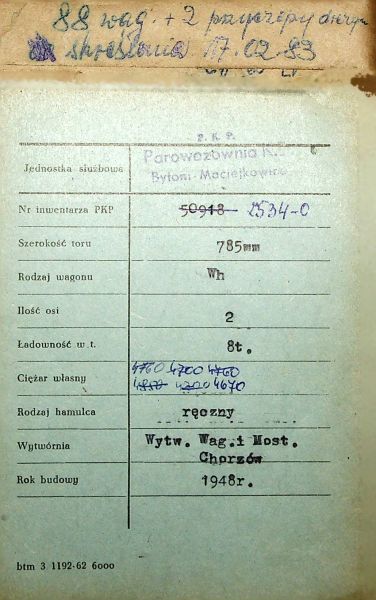 88 wag. + 2 przyczepy drezyn
skreślenia 17.02.83
P. K. P.
Jednostka służbowa Parowozownia
Bytom-Maciejkowice
Nr inwentarza PKP 50918 2534-0
Szerokość toru 785mm
Rodzaj wagonu Wh
Ilość osi 2
Ładowność w t. 8t.
Ciężar własny 4760 4700 4760
4850 4200 4670
Rodzaj hamulca ręczny
Wytwórnia Wytw. Wag.i Most.
Chorzów
Rok budowy 1948r.
btm 3 1192-62 6000